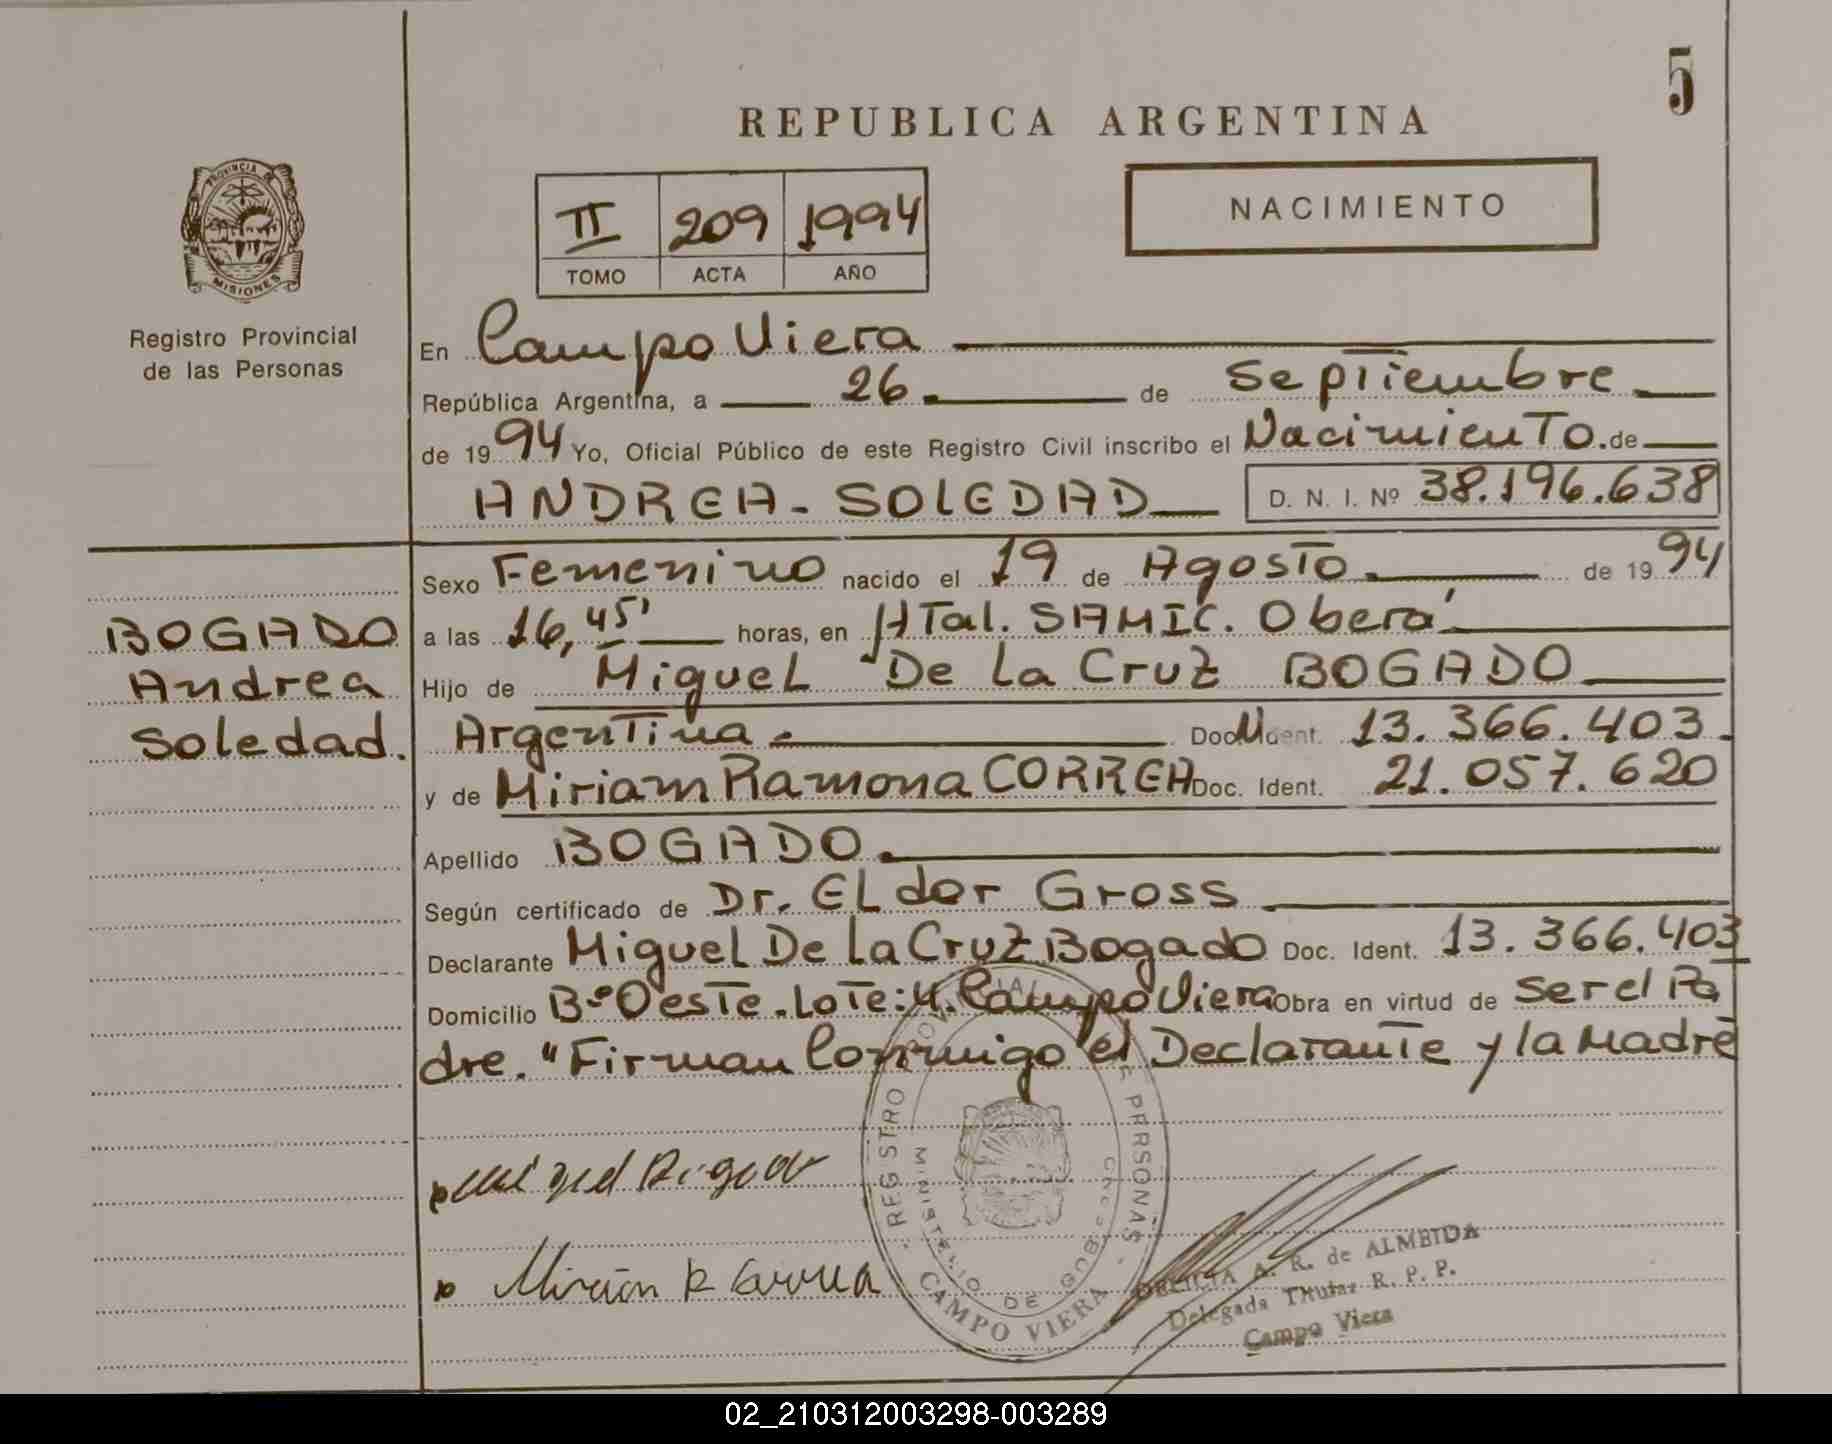 5
REPUBLICA ARGENTINA
NACIMIENTO
II 209 1994
TOMO ACTA AÑO
PROVINCIA DE
MISIONES
Registro Provincial
de las Personas
En Campo Viera
República Argentina, a 26 de Septiembre
de 1994 Yo, Oficial Público de este Registro Civil inscribo el Nacimiento de
ANDREA - SOLEDAD D. N. I. Nº 38.196.638
Sexo Femenino nacido el 19 de Agosto de 1994
a las 16,45' horas, en HTal. SAMIC. Oberá
Hijo de Miguel De La Cruz BOGADO
Argentina Doc. Ident. M 13.366.403
y de Miriam Ramona CORREA Doc. Ident. 21.057.620
Apellido BOGADO.
Según certificado de Dr. ELdor Gross
Declarante Miguel De La Cruz Bogado Doc. Ident. 13.366.403
Domicilio Bº Oeste. Lote: 4. Campo Viera Obra en virtud de ser el Pa
dre. "Firman Conmigo el Declarante y la Madre
BOGADO
Andrea
Soledad.
Miguel Bogado
Miriam R Correa
REGISTRO PROVINCIAL DE PERSONAS
MINISTERIO DE GOB
CAMPO VIERA
A. R. de ALMEIDA
Delegada Titular R. P. P.
Campo Viera
02_210312003298-003289